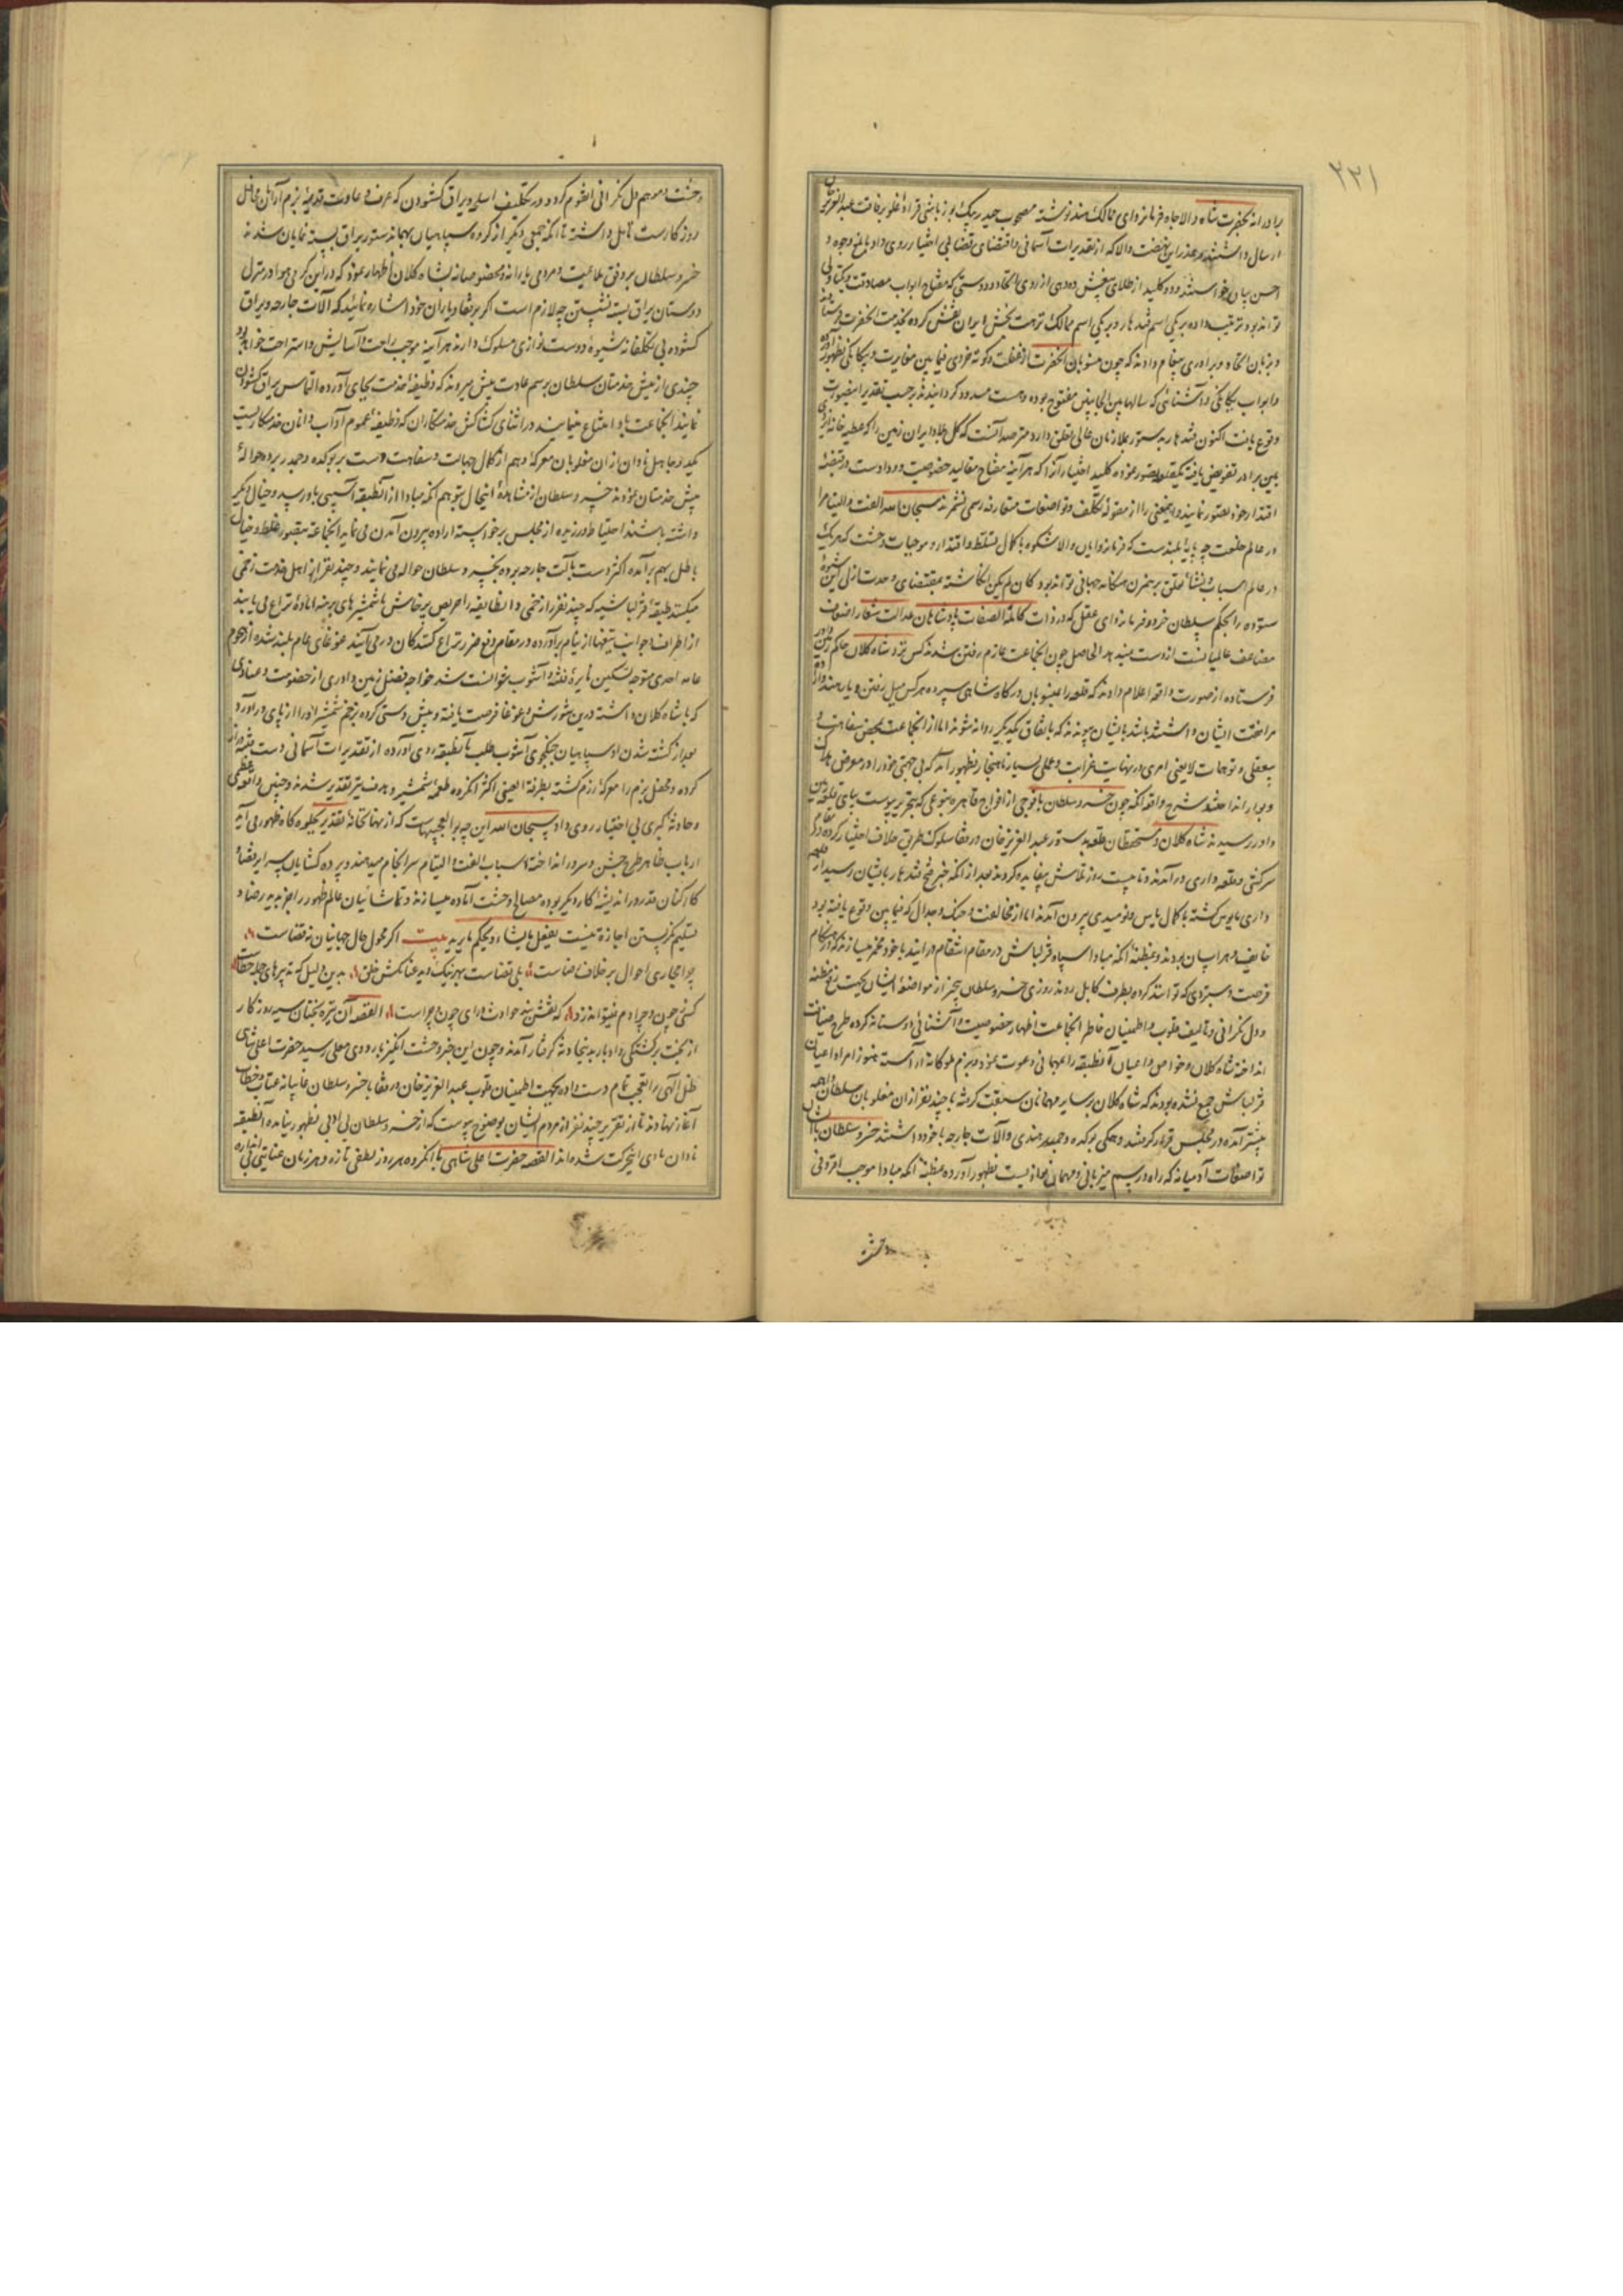 ۲۲۱
برادرانه بحضرت شاه والاجاه فرمانروای ممالک هند نوشته مصحوب حیدر بیک یوزباشی قراداغلو برفاقت عبدالعزیز خان
ارسال داشتند و عذر این نهضت والا که از تقدیرات آسمانی و اقتضای قضا بی اختیار روی داد بابلغ وجوه و
احسن بیان خواستند و دو کلید از طلای
تواند بود ترتیب داده بر یکی اسم قندهار و بر یکی اسم ممالک نزهت بخش ایران نقش کرده بخدمت آنحضرت فرستاده
و بزبان اتحاد و برادری پیغام دادند که چون منسوبان آنحضرت از غفلت و کوته خردی فیمابین مغایرت و بیگانگی بظهور آورده
و ابواب یگانگی و آشنائی که سالها بین الجانبین مفتوح بوده و هست مسدود گردانیدند بر حسب تقدیر اینصورت
وقوع یافت اکنون قندهار بدستور بملازمان عالی تعلق دارد مترصد آنست که کل بلاد ایران زمین را که عطیه خانه
بین برادر تفویض یافته یکقلعه تصور نموده کلید اختیار آنرا که هرآینه مفتاح مقالید خصوصیت و وداد است در قبضه
اقتدار خود تصور نمایند و اینمعنی را از مقوله تکلف و تواضعات متعارفه رسمی نشمرند سبحان الله الفت و التیام را
در عالم خلقت چه پایه بلندست که فرمانروایان والاشکوه با کمال تسلط و اقتدار و موجبات وحشت که هر یک
در عالم اسباب و نشأه تعلق برهمزن هنگامه جهانی تواند بود کان لم یکن انگاشته بمقتضای وحدت ازلی این شیوه
ستوده را بحکم سلطان خرد و فرمانروای عقل که در ذات کاملة الصفات پادشاهان عدالت شعار اضعاف
مضاعف عالمیانست از دست نمیدهد الحاصل چون آنجماعت عازم رفتن شدند کس نزد شاه کلان حاکم زمین داور
فرستاده از صورت واقعه اعلام دادند که قلعه را بمنسوبان درگاه شاهی سپرده هر کس میل رفتن دیار هند و اراده
مرافقت ایشان داشته باشد بایشان پیوندند که باتفاق یکدیگر روانه شوند اما از آنجماعت بمحض سفاهت و
بیعقلی و توهمات لایعنی امری در نهایت غرابت و عملی بسیار ناهنجار بظهور آمد که بی جهتی خود را در معرض هلاک
و بوار انداختند شرح واقعه آنکه چون خسرو سلطان با فوجی از افواج قاهره بنوعی که بتحریر پیوست بپای قلعه زمین
داور رسیدند شاه کلان و مستحفظان قلعه بدستور عبدالعزیز خان و رفقا سلوک طریق خلاف اختیار کرده در مقام
سرکشی و قلعه داری درآمدند و تا بیست روز تلاش بیفایده کردند بعد از آنکه خبر فتح قندهار بایشان رسید از قلعه
داری مأیوس گشته با کمال یأس و نومیدی بیرون آمدند اما از مخالفت و جنگ و جدال که فیمابین وقوع یافته بود
خایف و هراسان بودند و بمظنه آنکه مبادا سپاه قزلباش در مقام انتقام درآیند با خود مخمر میسازند که در هنگام
فرصت دستبردی که توانند کرده بطرف کابل روند روزی خسرو سلطان بیخبر از مواضعه ایشان بجهت رفع مظنه
و دل نگرانی و تألیف قلوب و اطمینان خاطر آنجماعت اظهار خصوصیت و آشنائی دوستانه کرده طرح ضیافت
انداخته شاه کلان و خواص و اعیان آنطبقه را بمهمانی دعوت نمود و بزم ملوکانه آراسته هنوز امرا و اعیان
قزلباش جمع نشده بودند که شاه کلان بر سایر مهمانان سبقت گرفته با چند نفر از آن مغلوبان سلطان واهمه
پیشتر آمده در مجلس قرار گرفتند و همگی یوکده و جمدر هندی و آلات جارحه با خود داشتند خسرو سلطان با ایشان
تواضعات آدمیانه که راه و رسم میزبانی و مهمان نوازیست بظهور آورده بمظنه آنکه مبادا موجب افزونی
وحشت
وحشت و موهم دل نگرانی آنقوم گردد در تکلیف اسلحه و یراق گشودن که عرف و عادت قدیمه بزم آرایان محافل
روزگارست تأمل داشته تا آنکه جمعی دیگر از گروه سپاهیان بهمان دستور یراق بسته نمایان شدند
خسرو سلطان بر وفق ملاعبت و مردمی یارانه و مخصوصانه بشاه کلان اظهار نمود که در این گرمی هوا در منزل
دوستان یراق بسته نشستن چه لازم است اگر برفقا و یاران خود اشاره نمائید که آلات جارحه و یراق
گشوده بی تکلفانه شیوه دوست نوازی مسلوک دارند هرآینه موجب راحت و آسایش و استراحت خواهد بود
چندی از پیش خدمتان سلطان برسم عادت پیش میروند که وظیفه خدمت بجای آورده التماس یراق گشودن
نمایند آنجماعت ابا و امتناع مینمایند در اثنای کشاکش خدمتکاران که وظیفه عموم آداب دانان خدمتکاریست
یکی از جاهل نادان از آن مغلوبان معرکه وهم از کمال جهالت و سفاهت دست بر یوکده و جمدر برده حواله
پیش خدمتان نمودند خسرو سلطان از مشاهده اینحال بتوهم آنکه مبادا از آنطبقه آسیبی باو رسد و خیال دیگر
داشته باشند احتیاط ورزیده از مجلس برخواسته اراده بیرون آمدن می نماید آنجماعه بتصور غلط و خیال
باطل بهم برآمده اکثر دست بآلت جارحه برده بخسرو سلطان حواله می نمایند و چند نفر از اهل خدمت زخمی
میگشتند طبقه قزلباشیه که چند نفر را زخمی و آنطایفه را حریص پرخاش با شمشیرهای برهنه آماده نزاع می یابند
از اطراف و جوانب تیغها از نیام برآورده در مقام دفع ضرر نزاع کنندگان درمی آیند غوغای عام بلند شده از هجوم
عامه احدی متوجه تسکین نایره فتنه و آشوب نتوانست شد خواجه فضل زمین داوری از خصومت و عنادی
که با شاه کلان داشته درین شورش و غوغا فرصت یافته و پیش دستی کرده بزخم شمشیر او را از پای درآورد
بعد از کشته شدن او سپاهیان جنگجوی آشوب طلب بآنطبقه روی آورده از تقدیرات آسمانی دست فتنه دراز
کرده و محفل بزم را معرکه رزم گشته بطرفة العینی اکثر آنگروه طعمه شمشیر و هدف تیر تقدیر شدند و چنین واقعه عظمی
و حادثه کبری بی اختیار روی داد سبحان الله این چه بوالعجبیهاست که از نهانخانه تقدیر بجلوه گاه ظهور می آید
ارباب ظاهر طرح جشن و سرور انداخته اسباب الفت و التیام سرانجام میدهند و پرده گشایان سرایر قضا و
کارکنان قدر در اندیشه کار دیگر بوده مصالح وحشت آماده میسازند و تماشائیان عالم ظهور را جز بدیده رضا و
تسلیم نگریستن اجازه نیست یفعل مایشاء و یحکم مایرید بیت اگر محول حال جهانیان نه قضاست
چرا مجاری احوال بر خلاف رضاست بلی قضاست بهر نیک و بد عنان کش خلق بدین دلیل که تدبیرهای جمله خطاست
کسی ز چون و چرا دم نمیتواند زد که نقشبند حوادث ورای چون و چراست القصه آن تیره بختان سیه روزگار
از بخت برگشتگی و ادبار بدینحادثه گرفتار آمدند و چون این خبر وحشت انگیز باردوی معلی رسید حضرت اعلی شاهی
ظل الهی را تعجب تمام دست داده بجهت اطمینان قلوب عبدالعزیز خان و رفقا با خسرو سلطان غایبانه عتاب و خطاب
آغاز نهادند تا از تقریر چند نفر از مردم ایشان بوضوح پیوست که از خسرو سلطان بی ادبی بظهور نیامده آنطبقه
نادان بادی اینحرکت شده اند القصه حضرت اعلی شاهی با آنگروه هر روز لطفی تازه و هر زمان عنایتی بی اندازه